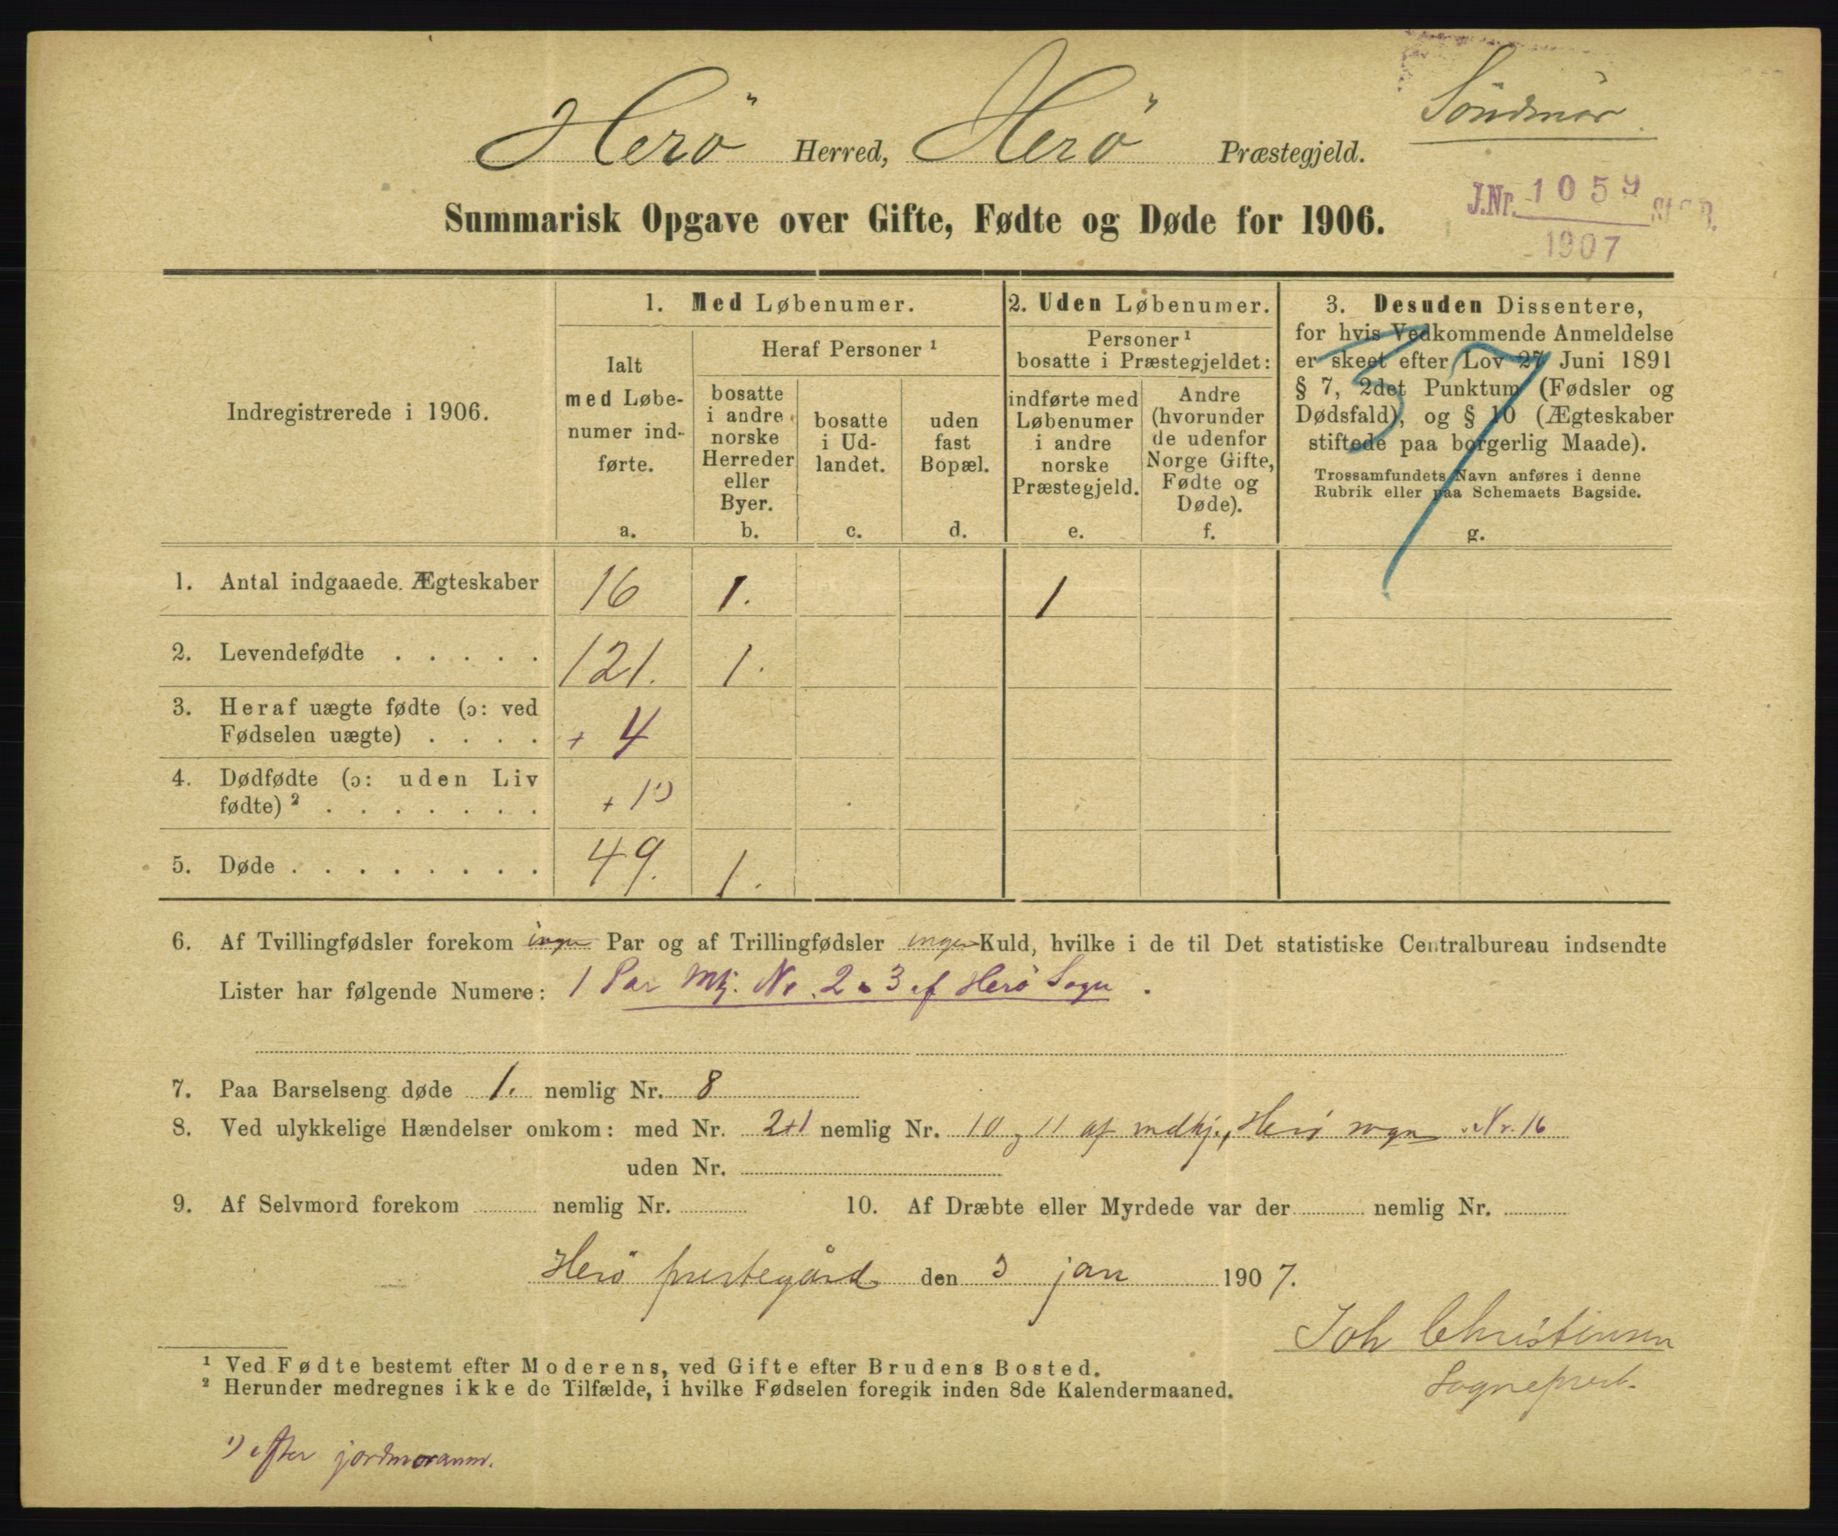 Søndmør.
Herö Herred, Herö Præstegjeld.
J.Nr. 1059 St.C.B.
1907
Summarisk Opgave over Gifte, Fødte og Døde for 1906.
Indregistrerede i 1906.
1. Med Løbenumer.
Ialt
med Løbe-
numer ind-
førte.
a.
Heraf Personer ¹
bosatte
i andre
norske
Herreder
eller
Byer.
b.
bosatte
i Ud-
landet.
c.
uden
fast
Bopæl.
d.
2. Uden Løbenumer.
Personer ¹
bosatte i Præstegjeldet:
indførte med
Løbenumer
i andre
norske
Præstegjeld.
e.
Andre
(hvorunder
de udenfor
Norge Gifte,
Fødte og
Døde).
f.
3. Desuden Dissentere,
for hvis Vedkommende Anmeldelse
er skeet efter Lov 27 Juni 1891
§ 7, 2det Punktum (Fødsler og
Dødsfald), og § 10 (Ægteskaber
stiftede paa borgerlig Maade).
Trossamfundets Navn anføres i denne
Rubrik eller paa Schemaets Bagside.
g.
1. Antal indgaaede Ægteskaber 16 1. 1
2. Levendefødte . . . . . 121. 1.
3. Heraf uægte fødte (ɔ: ved
Fødselen uægte) . . . . + 4
4. Dødfødte (ɔ: uden Liv
fødte) ² . . . . . . . + 1¹)
5. Døde . . . . . . . . 49. 1.
6. Af Tvillingfødsler forekom ingen Par og af Trillingfødsler ingen Kuld, hvilke i de til Det statistiske Centralbureau indsendte
Lister har følgende Numere: 1 Par Mkj. No. 2 - 3 af Herö Sogn.
7. Paa Barselseng døde 1. nemlig Nr. 8
8. Ved ulykkelige Hændelser omkom: med Nr. 2+1 nemlig Nr. 10 og 11 af mdkj., Herö sogn Nr. 16
uden Nr.
9. Af Selvmord forekom nemlig Nr. 10. Af Dræbte eller Myrdede var der nemlig Nr.
Herö prestegård den 3 jan 1907.
Joh Christensen
Sogneprest.
¹ Ved Fødte bestemt efter Moderens, ved Gifte efter Brudens Bosted.
² Herunder medregnes ikke de Tilfælde, i hvilke Fødselen foregik inden 8de Kalendermaaned.
¹) efter jordmoranm.